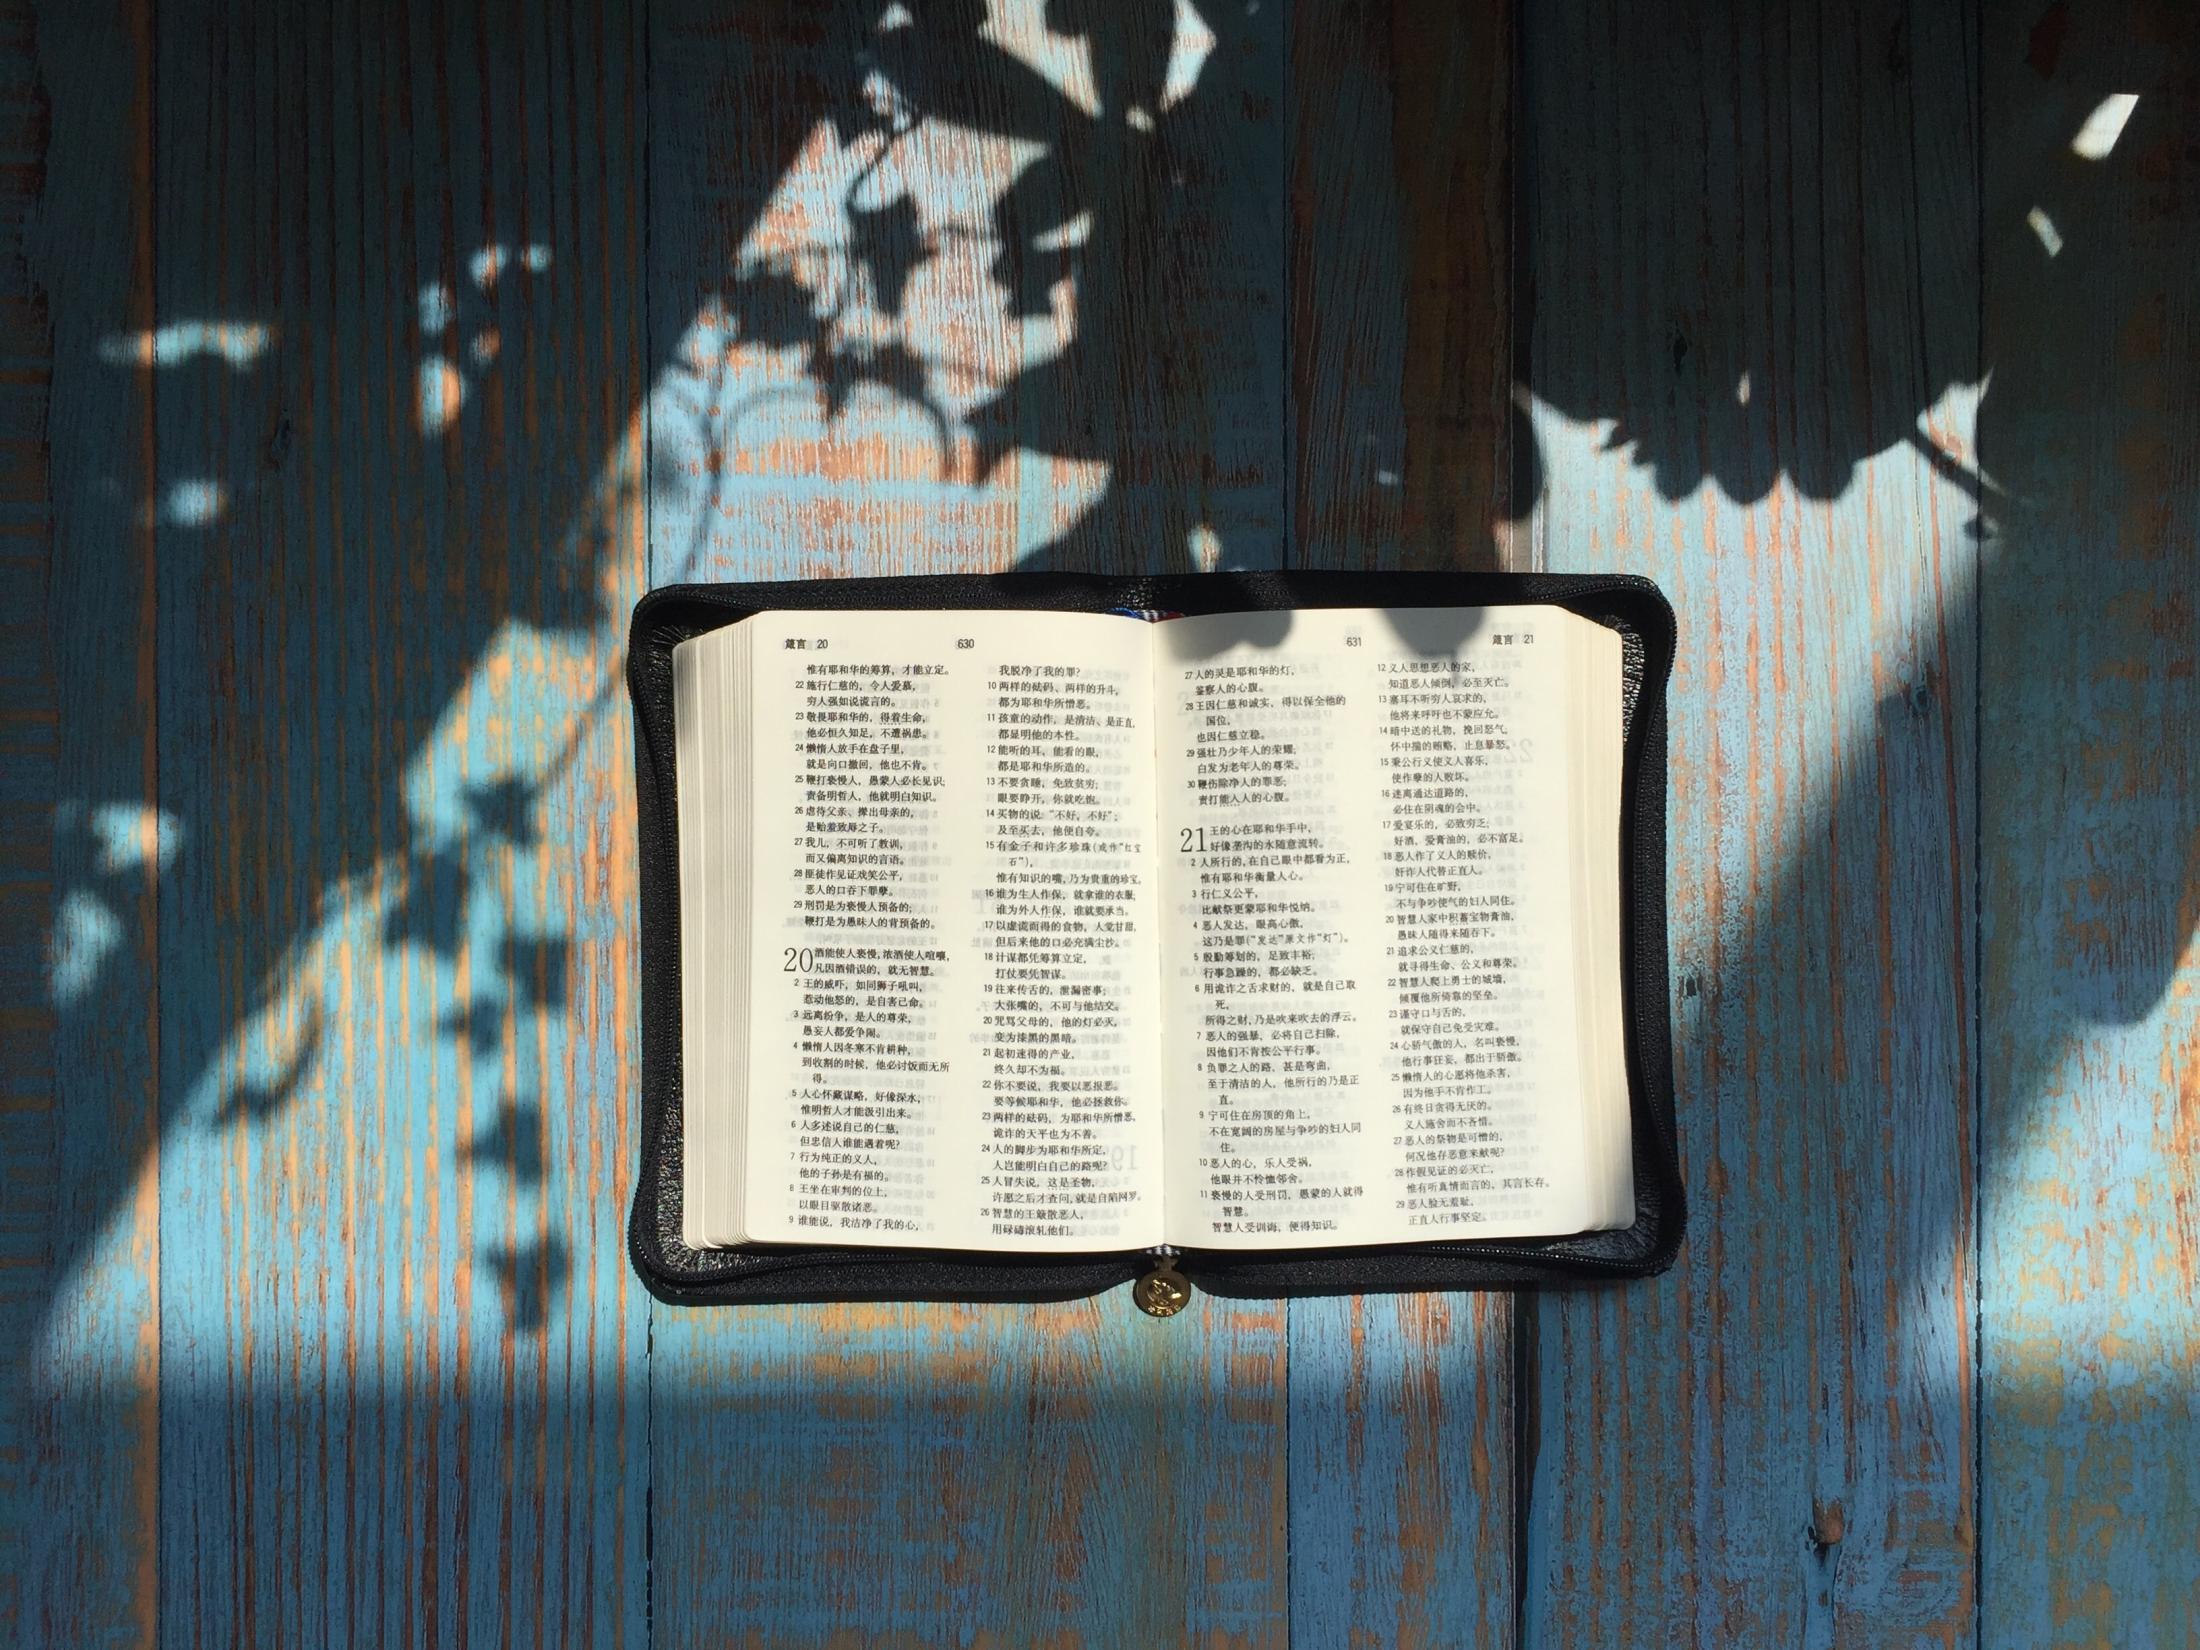 箴言 20
630
惟有耶和华的筹算，才能立定。
22 施行仁慈的，令人爱慕，
穷人强如说谎言的。
23 敬畏耶和华的，得着生命，
他必恒久知足，不遭祸患。
24 懒惰人放手在盘子里，
就是向口撤回，他也不肯。
25 鞭打亵慢人，愚蒙人必长见识；
责备明哲人，他就明白知识。
26 虐待父亲、撵出母亲的，
是贻羞致辱之子。
27 我儿，不可听了教训，
而又偏离知识的言语。
28 匪徒作见证戏笑公平，
恶人的口吞下罪孽。
29 刑罚是为亵慢人预备的；
鞭打是为愚昧人的背预备的。
20 酒能使人亵慢，浓酒使人喧嚷，
凡因酒错误的，就无智慧。
2 王的威吓，如同狮子吼叫，
惹动他怒的，是自害己命。
3 远离纷争，是人的尊荣，
愚妄人都爱争闹。
4 懒惰人因冬寒不肯耕种，
到收割的时候，他必讨饭而无所
得。
5 人心怀藏谋略，好像深水，
惟明哲人才能汲引出来。
6 人多述说自己的仁慈，
但忠信人谁能遇着呢？
7 行为纯正的义人，
他的子孙是有福的。
8 王坐在审判的位上，
以眼目驱散诸恶。
9 谁能说，我洁净了我的心，
我脱净了我的罪？
10 两样的砝码、两样的升斗，
都为耶和华所憎恶。
11 孩童的动作，是清洁、是正直，
都显明他的本性。
12 能听的耳，能看的眼，
都是耶和华所造的。
13 不要贪睡，免致贫穷；
眼要睁开，你就吃饱。
14 买物的说：“不好，不好”；
及至买去，他便自夸。
15 有金子和许多珍珠(或作“红宝
石”)，
惟有知识的嘴，乃为贵重的珍宝。
16 谁为生人作保，就拿谁的衣服，
谁为外人作保，谁就要承当。
17 以虚谎而得的食物，人觉甘甜，
但后来他的口必充满尘沙。
18 计谋都凭筹算立定，
打仗要凭智谋。
19 往来传舌的，泄漏密事；
大张嘴的，不可与他结交。
20 咒骂父母的，他的灯必灭，
变为漆黑的黑暗。
21 起初速得的产业，
终久却不为福。
22 你不要说，我要以恶报恶。
要等候耶和华，他必拯救你。
23 两样的砝码，为耶和华所憎恶，
诡诈的天平也为不善。
24 人的脚步为耶和华所定，
人岂能明白自己的路呢？
25 人冒失说，这是圣物，
许愿之后才查问，就是自陷网罗。
26 智慧的王簸散恶人，
用碌碡滚轧他们。
631
箴言 21
27 人的灵是耶和华的灯，
鉴察人的心腹。
28 王因仁慈和诚实，得以保全他的
国位，
也因仁慈立稳。
29 强壮乃少年人的荣耀；
白发为老年人的尊荣。
30 鞭伤除净人的罪恶；
责打能入人的心腹。
21 王的心在耶和华手中，
好像垄沟的水随意流转。
2 人所行的，在自己眼中都看为正，
惟有耶和华衡量人心。
3 行仁义公平，
比献祭更蒙耶和华悦纳。
4 恶人发达，眼高心傲，
这乃是罪(“发达”原文作“灯”)。
5 殷勤筹划的，足致丰裕；
行事急躁的，都必缺乏。
6 用诡诈之舌求财的，就是自己取
死，
所得之财，乃是吹来吹去的浮云。
7 恶人的强暴，必将自己扫除，
因他们不肯按公平行事。
8 负罪之人的路，甚是弯曲，
至于清洁的人，他所行的乃是正
直。
9 宁可住在房顶的角上，
不在宽阔的房屋与争吵的妇人同
住。
10 恶人的心，乐人受祸，
他眼并不怜恤邻舍。
11 亵慢的人受刑罚，愚蒙的人就得
智慧。
智慧人受训诲，便得知识。
12 义人思想恶人的家，
知道恶人倾倒，必至灭亡。
13 塞耳不听穷人哀求的，
他将来呼吁也不蒙应允。
14 暗中送的礼物，挽回怒气，
怀中搋的贿赂，止息暴怒。
15 秉公行义使义人喜乐，
使作孽的人败坏。
16 迷离通达道路的，
必住在阴魂的会中。
17 爱宴乐的，必致穷乏；
好酒、爱膏油的，必不富足。
18 恶人作了义人的赎价，
奸诈人代替正直人。
19 宁可住在旷野，
不与争吵使气的妇人同住。
20 智慧人家中积蓄宝物膏油，
愚昧人随得来随吞下。
21 追求公义仁慈的，
就寻得生命、公义和尊荣。
22 智慧人爬上勇士的城墙，
倾覆他所倚靠的坚垒。
23 谨守口与舌的，
就保守自己免受灾难。
24 心骄气傲的人，名叫亵慢，
他行事狂妄，都出于骄傲。
25 懒惰人的心愿将他杀害，
因为他手不肯作工。
26 有终日贪得无厌的，
义人施舍而不吝惜。
27 恶人的祭物是可憎的，
何况他存恶意来献呢？
28 作假见证的必灭亡，
惟有听真情而言的，其言长存。
29 恶人脸无羞耻，
正直人行事坚定。